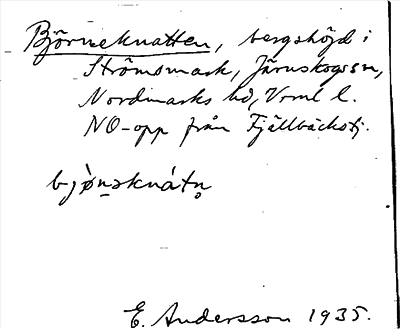 Björneknatten, bergshöjd i
Strömsmark, Järnskogs sn,
Nordmarks hd, Vrml l.
NO-opp från Fjällbäckstj.
bjø̀nəknátn̥
E. Andersson 1935.